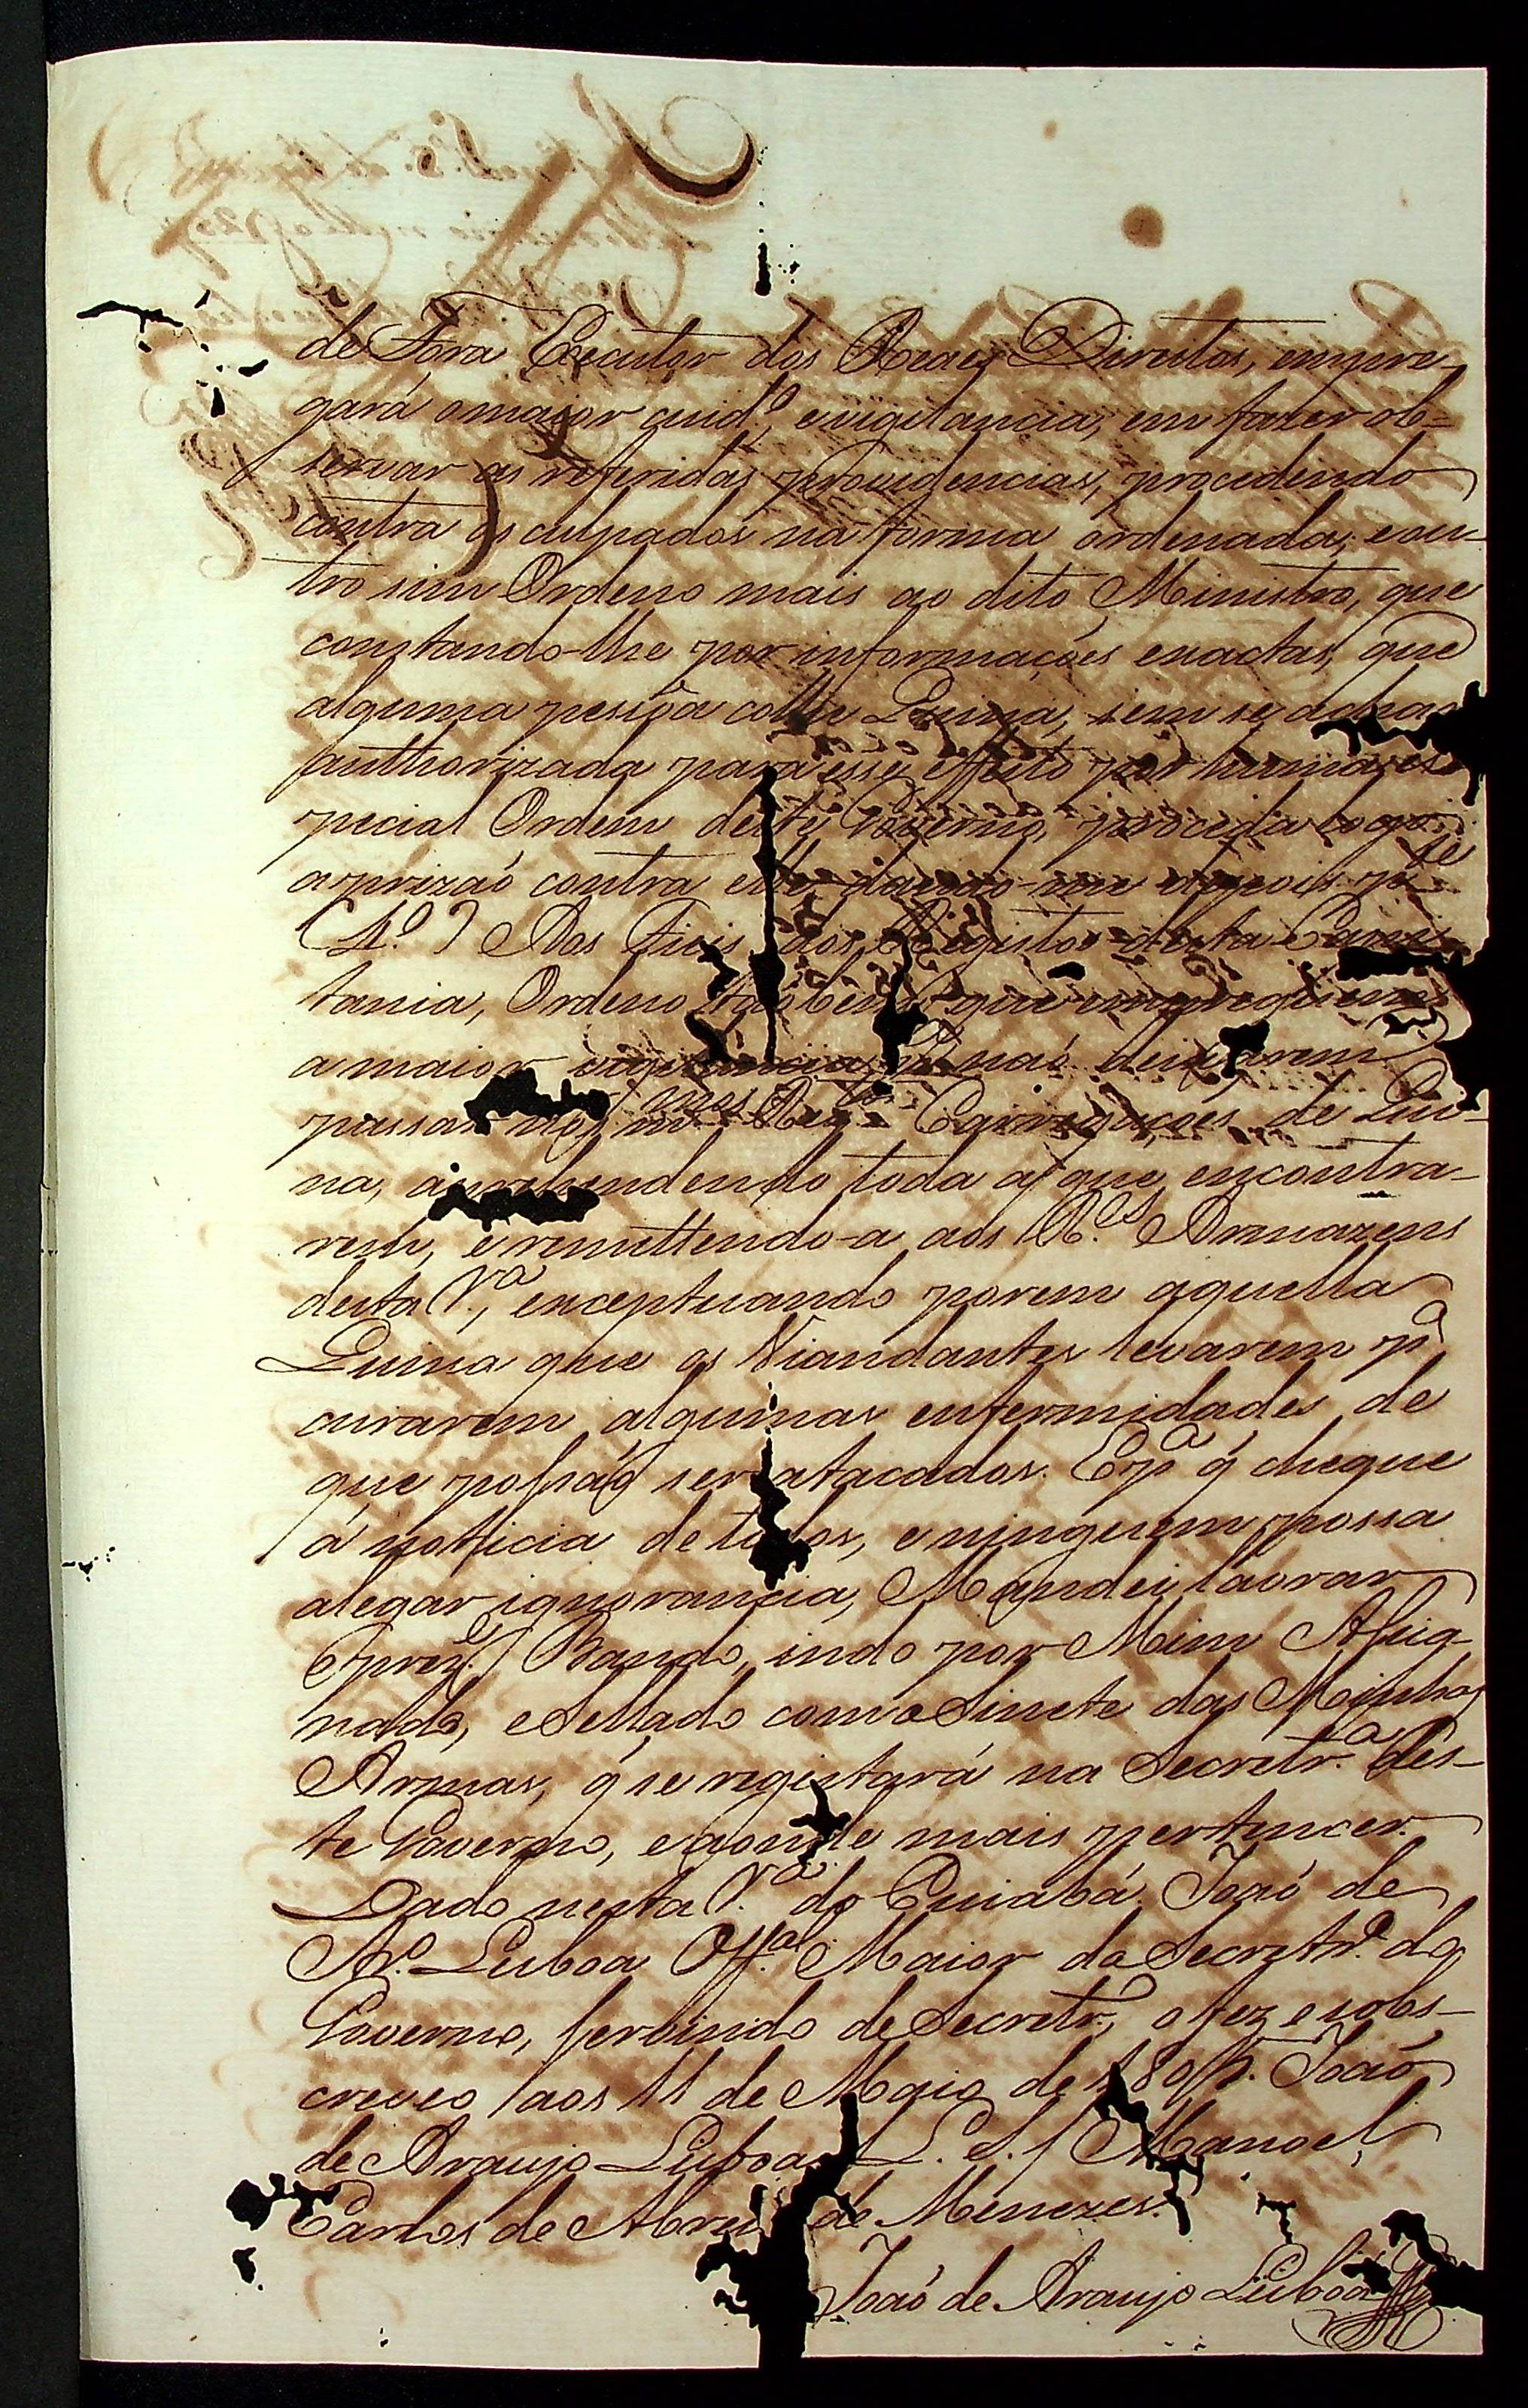 de Fóra Executor dos Reaes Direitos, empre-
gará o maior cuid.º, e vigilancia, em fazer ob-
servar as referidas providencias, procedendo
contra os culpados na forma ordenada; e ou-
tro sim Ordeno mais ao dito Ministro, que
constando-lhe por informaçoẽs exactas, que
alguma pesôa colhe Quina, sem se achar
authorizada para esse effeito por huma es-
pecial Ordem deste Governo, proceda logo
a prizaõ contra elle, dando-me depois p.te
Aos Fieis dos Registos desta Capi-
tania, Ordeno tãobem que empreguem
a maior vigilancia, naõ deixarem
passar nos m.mos Reg.tos Carregaçoẽs de Qui-
na, aprehendendo toda a que encontra-
rem, e remettendo-a aos R.es Armazens
desta V.ª, exceptuando porem aquella
Quina que os Viandantes levarem p.ª
curarem algumas enfermidades de
que possaõ ser atacados. E p.ª q̃ chegue
á noticia de todos, e ninguem possa
alegar ignorancia, Mandei lavrar
o prez.e Bando, indo por Mim Assig-
nado, e Sellado com o Sinete das Minhas
Armas, q̃ se registará na Secretr.ª des-
te Governo, e aonde mais pertencer.
Dado nesta V.ª do Cuiabá. Joaõ de
Ar.º Lisboa Off.al Maior da Secretr.ª do
Governo, servindo de Secretr.º, o fez e sobs-
creveo aos 11 de Maio de 180 Joaõ
de Araujo Lisboa. L. S. / Manoel
Carlos de Abreu de Menezes.
Joaõ de Araujo Lisboa